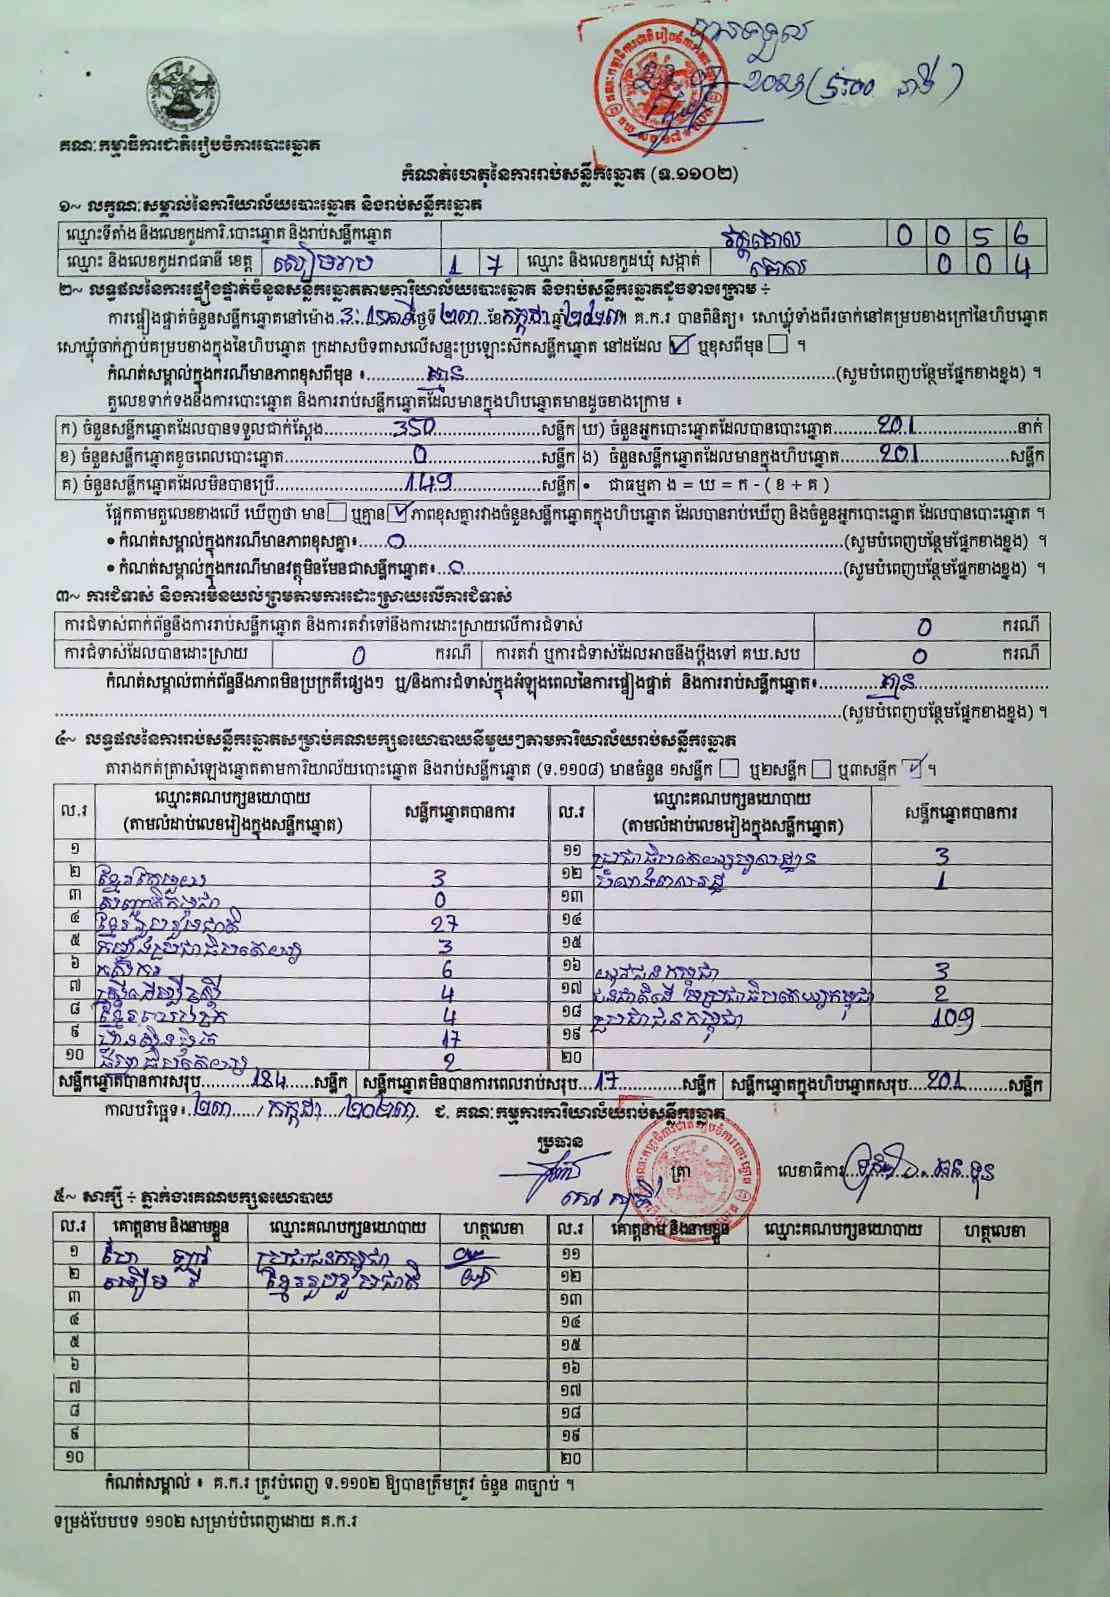 បានទទួល
គណៈកម្មាធិការជាតិរៀបចំការបោះឆ្នោត
កំណត់ហេតុនៃការរាប់សន្លឹកឆ្នោត (ទ.១១០២)
១~ លក្ខណៈសម្គាល់នៃការិយាល័យបោះឆ្នោត និងរាប់សន្លឹកឆ្នោត
ឈ្មោះទីតាំង និងលេខកូដការិ.បោះឆ្នោត និងរាប់សន្លឹកឆ្នោត វត្តគោល 0 0 5 6
ឈ្មោះ និងលេខកូដរាជធានី ខេត្ត សៀមរាប 1 7 ឈ្មោះ និងលេខកូដឃុំ សង្កាត់ គោល 0 0 4
២~ លទ្ធផលនៃការផ្ទៀងផ្ទាត់ចំនួនសន្លឹកឆ្នោតតាមការិយាល័យបោះឆ្នោត និងរាប់សន្លឹកឆ្នោតដូចខាងក្រោម ÷
ការផ្ទៀងផ្ទាត់ចំនួនសន្លឹកឆ្នោតនៅម៉ោង 3:15នាទី ថ្ងៃទី ២៣ ខែ កក្កដា ឆ្នាំ ២០២៣ គ.ក.រ បានពិនិត្យ៖ សោឃ្លុំទាំងពីរចាក់នៅគម្របខាងក្រៅនៃហិបឆ្នោត
សោឃ្លុំចាក់ភ្ជាប់គម្របខាងក្នុងនៃហិបឆ្នោត ក្រដាសបិទពាសលើសន្ទះប្រឡោះស៊កសន្លឹកឆ្នោត នៅដដែល ☑ ឬខុសពីមុន ☐ ។
កំណត់សម្គាល់ក្នុងករណីមានភាពខុសពីមុន ៖ គ្មាន (សូមបំពេញបន្ថែមផ្នែកខាងខ្នង) ។
តួលេខទាក់ទងនឹងការបោះឆ្នោត និងការរាប់សន្លឹកឆ្នោតដែលមានក្នុងហិបឆ្នោតមានដូចខាងក្រោម ៖
ក) ចំនួនសន្លឹកឆ្នោតដែលបានទទួលជាក់ស្តែង 350 សន្លឹក ឃ) ចំនួនអ្នកបោះឆ្នោតដែលបានបោះឆ្នោត 201 នាក់
ខ) ចំនួនសន្លឹកឆ្នោតខូចពេលបោះឆ្នោត 0 សន្លឹក ង) ចំនួនសន្លឹកឆ្នោតដែលមានក្នុងហិបឆ្នោត 201 សន្លឹក
គ) ចំនួនសន្លឹកឆ្នោតដែលមិនបានប្រើ 149 សន្លឹក • ជាធម្មតា ង = ឃ = ក - ( ខ + គ )
ផ្អែកតាមតួលេខខាងលើ ឃើញថា មាន ☐ ឬគ្មាន ☑ ភាពខុសគ្នារវាងចំនួនសន្លឹកឆ្នោតក្នុងហិបឆ្នោត ដែលបានរាប់ឃើញ និងចំនួនអ្នកបោះឆ្នោត ដែលបានបោះឆ្នោត ។
• កំណត់សម្គាល់ក្នុងករណីមានភាពខុសគ្នា៖ 0 (សូមបំពេញបន្ថែមផ្នែកខាងខ្នង) ។
• កំណត់សម្គាល់ក្នុងករណីមានវត្ថុមិនមែនជាសន្លឹកឆ្នោត៖ 0 (សូមបំពេញបន្ថែមផ្នែកខាងខ្នង) ។
៣~ ការជំទាស់ និងការមិនយល់ព្រមតាមការដោះស្រាយលើការជំទាស់
ការជំទាស់ពាក់ព័ន្ធនឹងការរាប់សន្លឹកឆ្នោត និងការតវ៉ាទៅនឹងការដោះស្រាយលើការជំទាស់ 0 ករណី
ការជំទាស់ដែលបានដោះស្រាយ 0 ករណី ការតវ៉ា ឬការជំទាស់ដែលអាចនឹងប្តឹងទៅ គឃ.សប 0 ករណី
កំណត់សម្គាល់ពាក់ព័ន្ធនឹងភាពមិនប្រក្រតីផ្សេងៗ ឬ/និងការជំទាស់ក្នុងអំឡុងពេលនៃការផ្ទៀងផ្ទាត់ និងការរាប់សន្លឹកឆ្នោត៖ គ្មាន
(សូមបំពេញបន្ថែមផ្នែកខាងខ្នង) ។
៤~ លទ្ធផលនៃការរាប់សន្លឹកឆ្នោតសម្រាប់គណបក្សនយោបាយនីមួយៗតាមការិយាល័យរាប់សន្លឹកឆ្នោត
តារាងកត់ត្រាសំឡេងឆ្នោតតាមការិយាល័យបោះឆ្នោត និងរាប់សន្លឹកឆ្នោត (ទ.១១០៨) មានចំនួន ១សន្លឹក ☐ ឬ២សន្លឹក ☐ ឬ៣សន្លឹក ☑ ។
ល.រ ឈ្មោះគណបក្សនយោបាយ (តាមលំដាប់លេខរៀងក្នុងសន្លឹកឆ្នោត) សន្លឹកឆ្នោតបានការ ល.រ ឈ្មោះគណបក្សនយោបាយ (តាមលំដាប់លេខរៀងក្នុងសន្លឹកឆ្នោត) សន្លឹកឆ្នោតបានការ
១ ១១ ប្រជាធិបតេយ្យមូលដ្ឋាន 3
២ ខ្មែរតែមួយ 3 ១២ 1
៣ 0 ១៣
៤ ខ្មែររួបរួមជាតិ 27 ១៤
៥ កម្លាំងប្រជាធិបតេយ្យ 3 ១៥
៦ កសិករ 6 ១៦ យុវជនកម្ពុជា 3
៧ ស្ត្រីដើម្បីស្ត្រី 4 ១៧ ជនជាតិដើមប្រជាធិបតេយ្យកម្ពុជា 2
៨ 4 ១៨ ប្រជាជនកម្ពុជា 109
៩ ហ្វ៊ុនស៊ិនប៉ិច 17 ១៩
១០ ធម្មាធិបតេយ្យ 2 ២០
សន្លឹកឆ្នោតបានការសរុប 184 សន្លឹក សន្លឹកឆ្នោតមិនបានការពេលរាប់សរុប 17 សន្លឹក សន្លឹកឆ្នោតក្នុងហិបឆ្នោតសរុប 201 សន្លឹក
កាលបរិច្ឆេទ៖ ២៣ / កក្កដា / ២០២៣ ជ. គណៈកម្មការការិយាល័យរាប់សន្លឹកឆ្នោត
ប្រធាន ត្រា លេខាធិការ
៥~ សាក្សី ÷ ភ្នាក់ងារគណបក្សនយោបាយ
ល.រ គោត្តនាម និងនាមខ្លួន ឈ្មោះគណបក្សនយោបាយ ហត្ថលេខា ល.រ គោត្តនាម និងនាមខ្លួន ឈ្មោះគណបក្សនយោបាយ ហត្ថលេខា
១ ប្រជាជនកម្ពុជា ១១
២ ខ្មែររួបរួមជាតិ ១២
៣ ១៣
៤ ១៤
៥ ១៥
៦ ១៦
៧ ១៧
៨ ១៨
៩ ១៩
១០ ២០
កំណត់សម្គាល់ ៖ គ.ក.រ ត្រូវបំពេញ ទ.១១០២ ឱ្យបានត្រឹមត្រូវ ចំនួន ៣ច្បាប់ ។
ទម្រង់បែបបទ ១១០២ សម្រាប់បំពេញដោយ គ.ក.រ